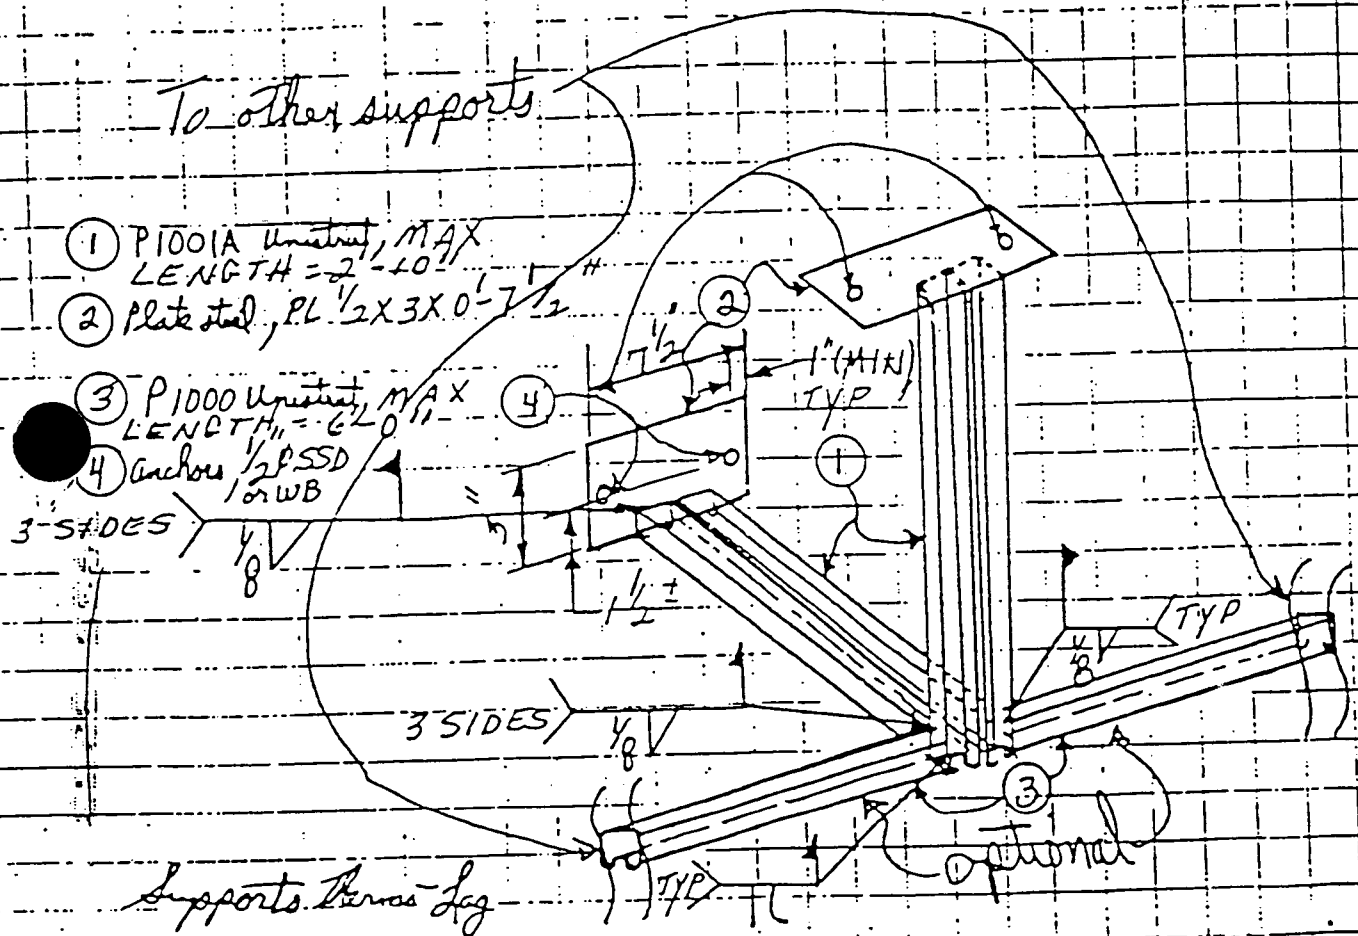 To other supports
① P1001A Unistrut, MAX
LENGTH = 2'-10"
② Plate steel, PL 1/2 X 3 X 0'-7 1/2"
③ P1000 Unistrut, MAX
LENGTH = 6'-0"
④ anchors 1/2 ϕ SSD
or WB
3-SIDES
1/8
②
7 1/2"
1" (MIN)
TYP
④
①
1 1/2 ±
TYP
1/8
3 SIDES
1/8
③
Optional
TYP
Supports Thermo-Lag